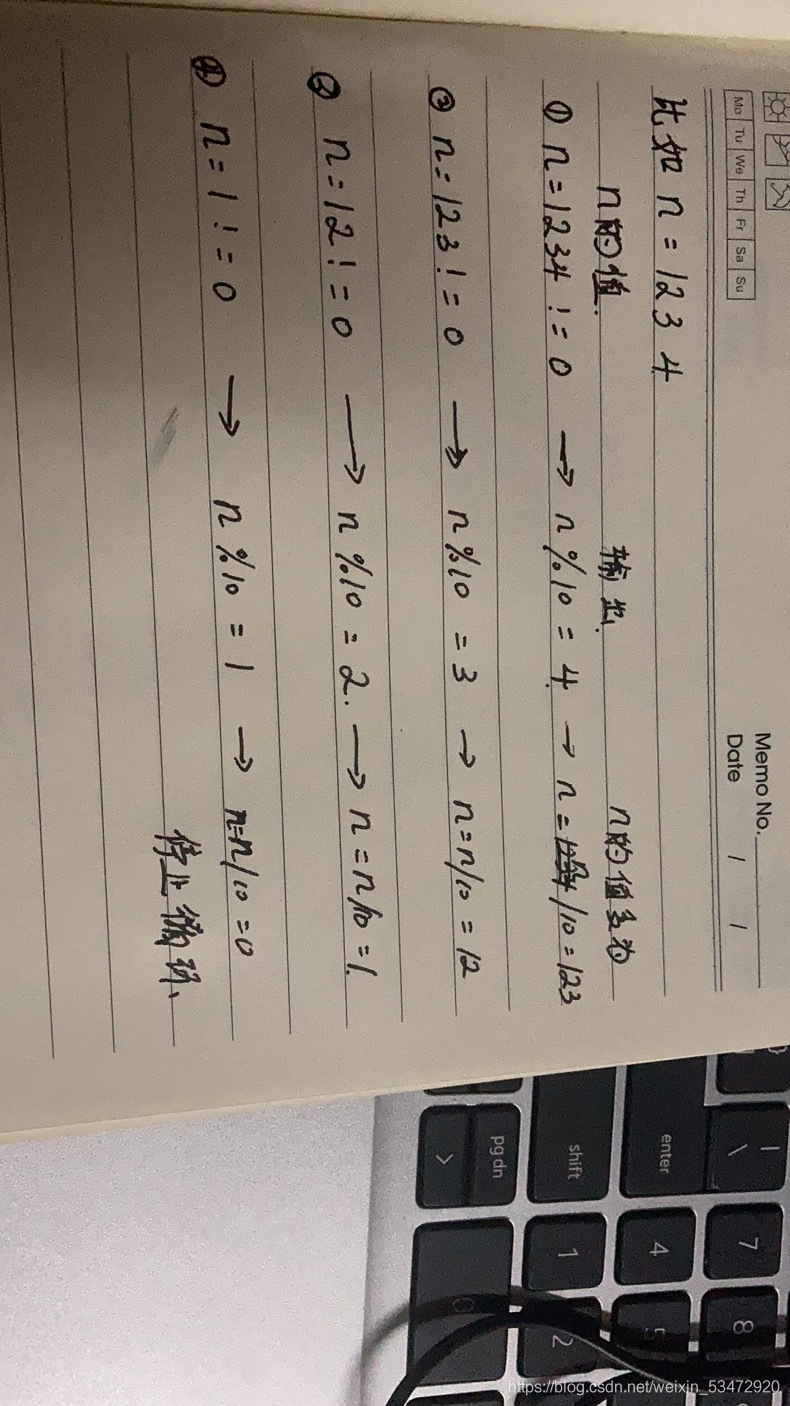 Memo No.
Mo Tu We Th Fr Sa Su
Date / /
比如 n = 1234
n的值. 输出. n的值变为
① n = 1234 != 0 → n%10 = 4 → n = /10 = 123
③ n = 123 != 0 → n%10 = 3 → n = n/10 = 12
② n = 12 != 0 → n%10 = 2. → n = n/10 = 1.
④ n = 1 != 0 → n%10 = 1 → n = n/10 = 0
停止循环、
| \
enter
shift
pg dn
>
7
8
4
5
1
2
0
https://blog.csdn.net/weixin_53472920